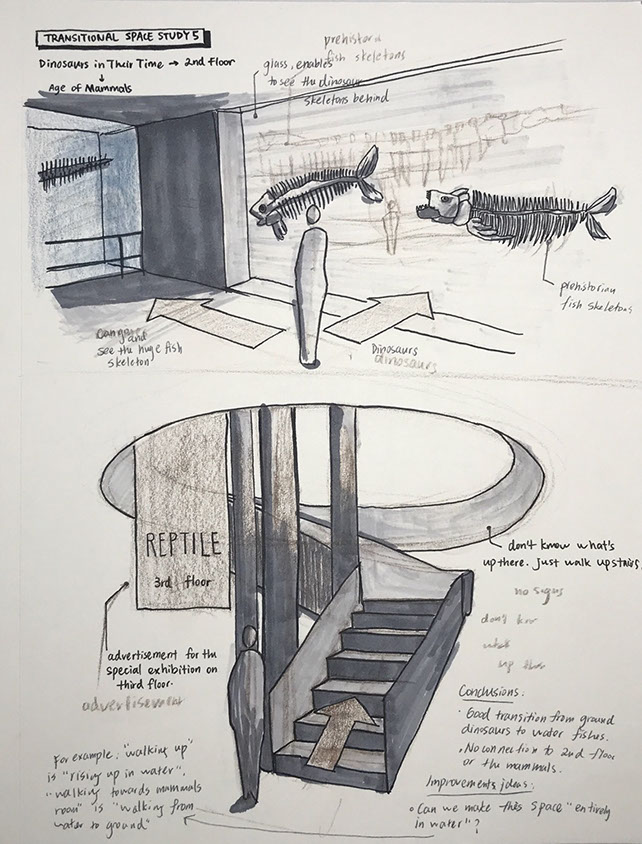 TRANSITIONAL SPACE STUDY 5
Dinosaurs in Their Time → 2nd floor
↓
Age of Mammals
glass, enables
to see the dinosaur
skeletons behind
prehistord
fish skeletons
prehistorian
fish skeletons
and
see the huge fish
skeleton
Dinosaurs
dinosaurs
REPTILE
3rd floor
don't know what's
up there. Just walk upstairs.
no signs
don't
what
up
advertisement for the
special exhibition on
third floor.
advertisement
Conclusions:
· Good transition from ground
dinosaurs to water fishes.
· No connection to 2nd floor
or the mammals.
Improvements ideas:
• Can we make this space "entirely
in water"?
For example: "walking up"
is "rising up in water".
"walking towards mammals
room" is "walking from
water to ground"